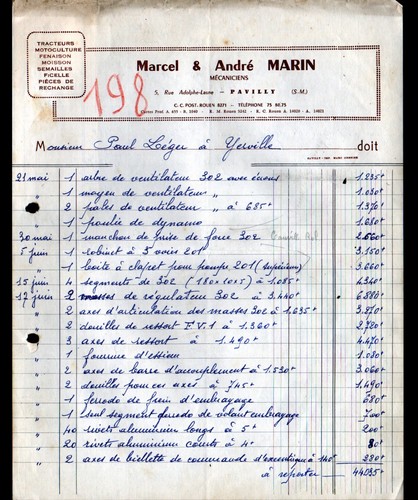 TRACTEURS
MOTOCULTURE
FENAISON
MOISSON
SEMAILLES
FICELLE
PIÈCES DE
RECHANGE
198
Marcel & André MARIN
MÉCANICIENS
5, Rue Adolphe-Leune - PAVILLY (S.-M.)
C.-C. POST. ROUEN 8271 - TÉLÉPHONE 75 et 75
Monsieur Paul Léger à Yerville doit
21 mai 1 arbre de ventilateur 302 avec écrous 1.235+
1 moyeu de ventilateur " 1.030
2 pales de ventilateur " à 685+ 1.370
1 poulie de dynamo 1.680
30 mai 1 manchon de prise de force 302 2.560
5 juin 1 robinet à 3 voies 201 3.150+
1 boîte à clapet pour pompe 201 (supérieur) 3.660
15 juin 4 segments de 302 (180 x 10 x 5) à 1.085+ 4.340
17 juin 2 masses de régulateur 302 à 3.440+ 6.880+
2 axes d'articulation des masses 302 à 1.635+ 3.270
2 douilles de ressort F.V.1 à 1.360+ 2.720
3 axes de ressort à 1.490+ 4.470
1 fourrure d'essieu 1.030
2 axes de barre d'accouplement à 1.530+ 3.060+
2 douilles pour ces axes à 745+ 1.490
1 ferodo de frein d'embrayage 680
1 seul segment ferodo de volant embrayage 700+
40 rivets aluminium longs à 5+ 200
20 rivets aluminium courts à 4+ 80
2 axes de biellette de commande d'excentrique à 140+ 280+
à reporter 44.035+